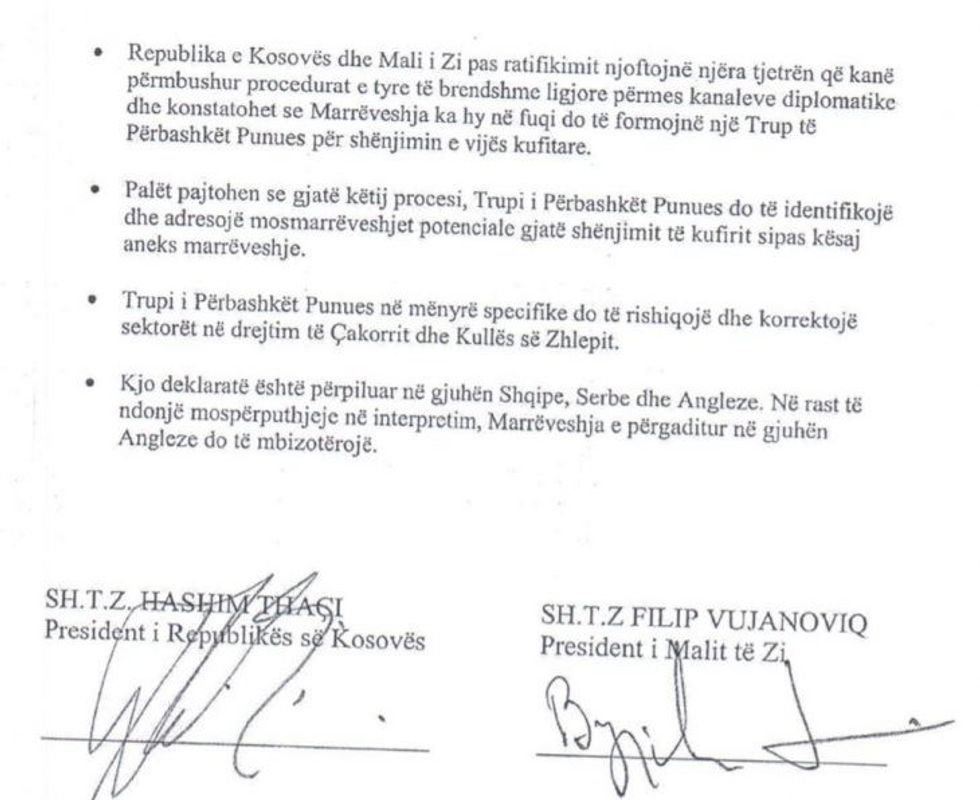 • Republika e Kosovës dhe Mali i Zi pas ratifikimit njoftojnë njëra tjetrën që kanë
përmbushur procedurat e tyre të brendshme ligjore përmes kanaleve diplomatike
dhe konstatohet se Marrëveshja ka hy në fuqi do të formojnë një Trup të
Përbashkët Punues për shënjimin e vijës kufitare.
• Palët pajtohen se gjatë këtij procesi, Trupi i Përbashkët Punues do të identifikojë
dhe adresojë mosmarrëveshjet potenciale gjatë shënjimit të kufirit sipas kësaj
aneks marrëveshje.
• Trupi i Përbashkët Punues në mënyrë specifike do të rishiqojë dhe korrektojë
sektorët në drejtim të Çakorrit dhe Kullës së Zhlepit.
• Kjo deklaratë është përpiluar në gjuhën Shqipe, Serbe dhe Angleze. Në rast të
ndonjë mospërputhjeje në interpretim, Marrëveshja e përgaditur në gjuhën
Angleze do të mbizotërojë.
SH.T.Z. HASHIM THAÇI
President i Republikës së Kosovës
SH.T.Z FILIP VUJANOVIQ
President i Malit të Zi